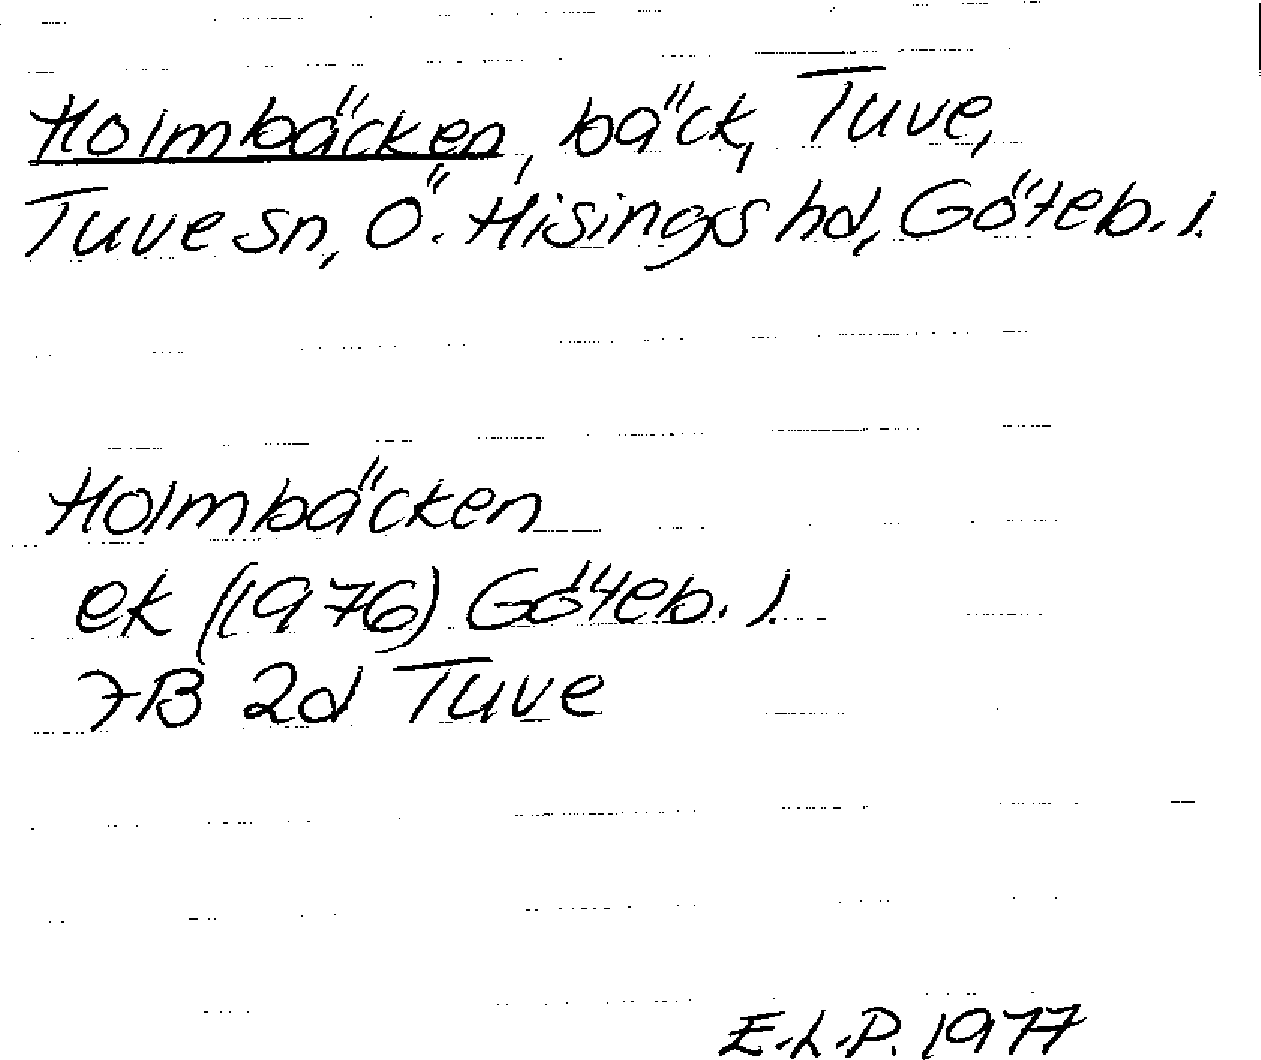 Holmbäcken, bäck, Tuve,
Tuve sn, Ö. Hisings hd, Göteb. l.
Holmbäcken
ek (1976) Göteb. l.
7B 2d Tuve
E.L.P. 1977